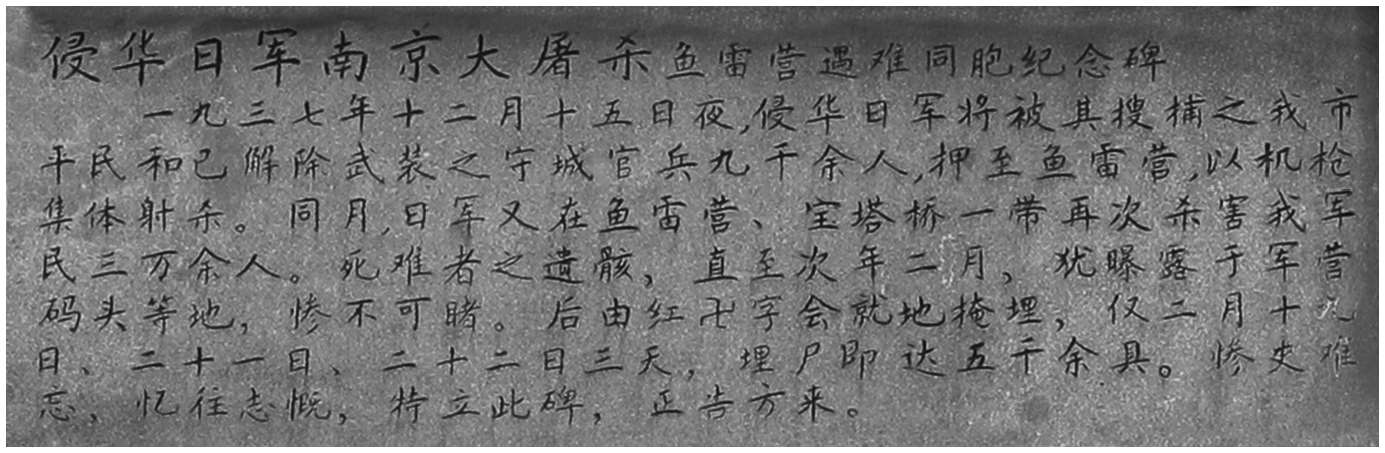 侵华日军南京大屠杀鱼雷营遇难同胞纪念碑
一九三七年十二月十五日夜,侵华日军将被其搜捕之我市
平民和已解除武装之守城官兵九千余人,押至鱼雷营,以机枪
集体射杀。同月,日军又在鱼雷营、宝塔桥一带再次杀害我军
民三万余人。死难者之遗骸，直至次年二月，犹曝露于军营
码头等地，惨不可睹。后由红卍字会就地掩埋，仅二月十九
日、二十一日、二十二日三天，埋尸即达五千余具。惨史难
忘，忆往志慨，特立此碑，正告方来。